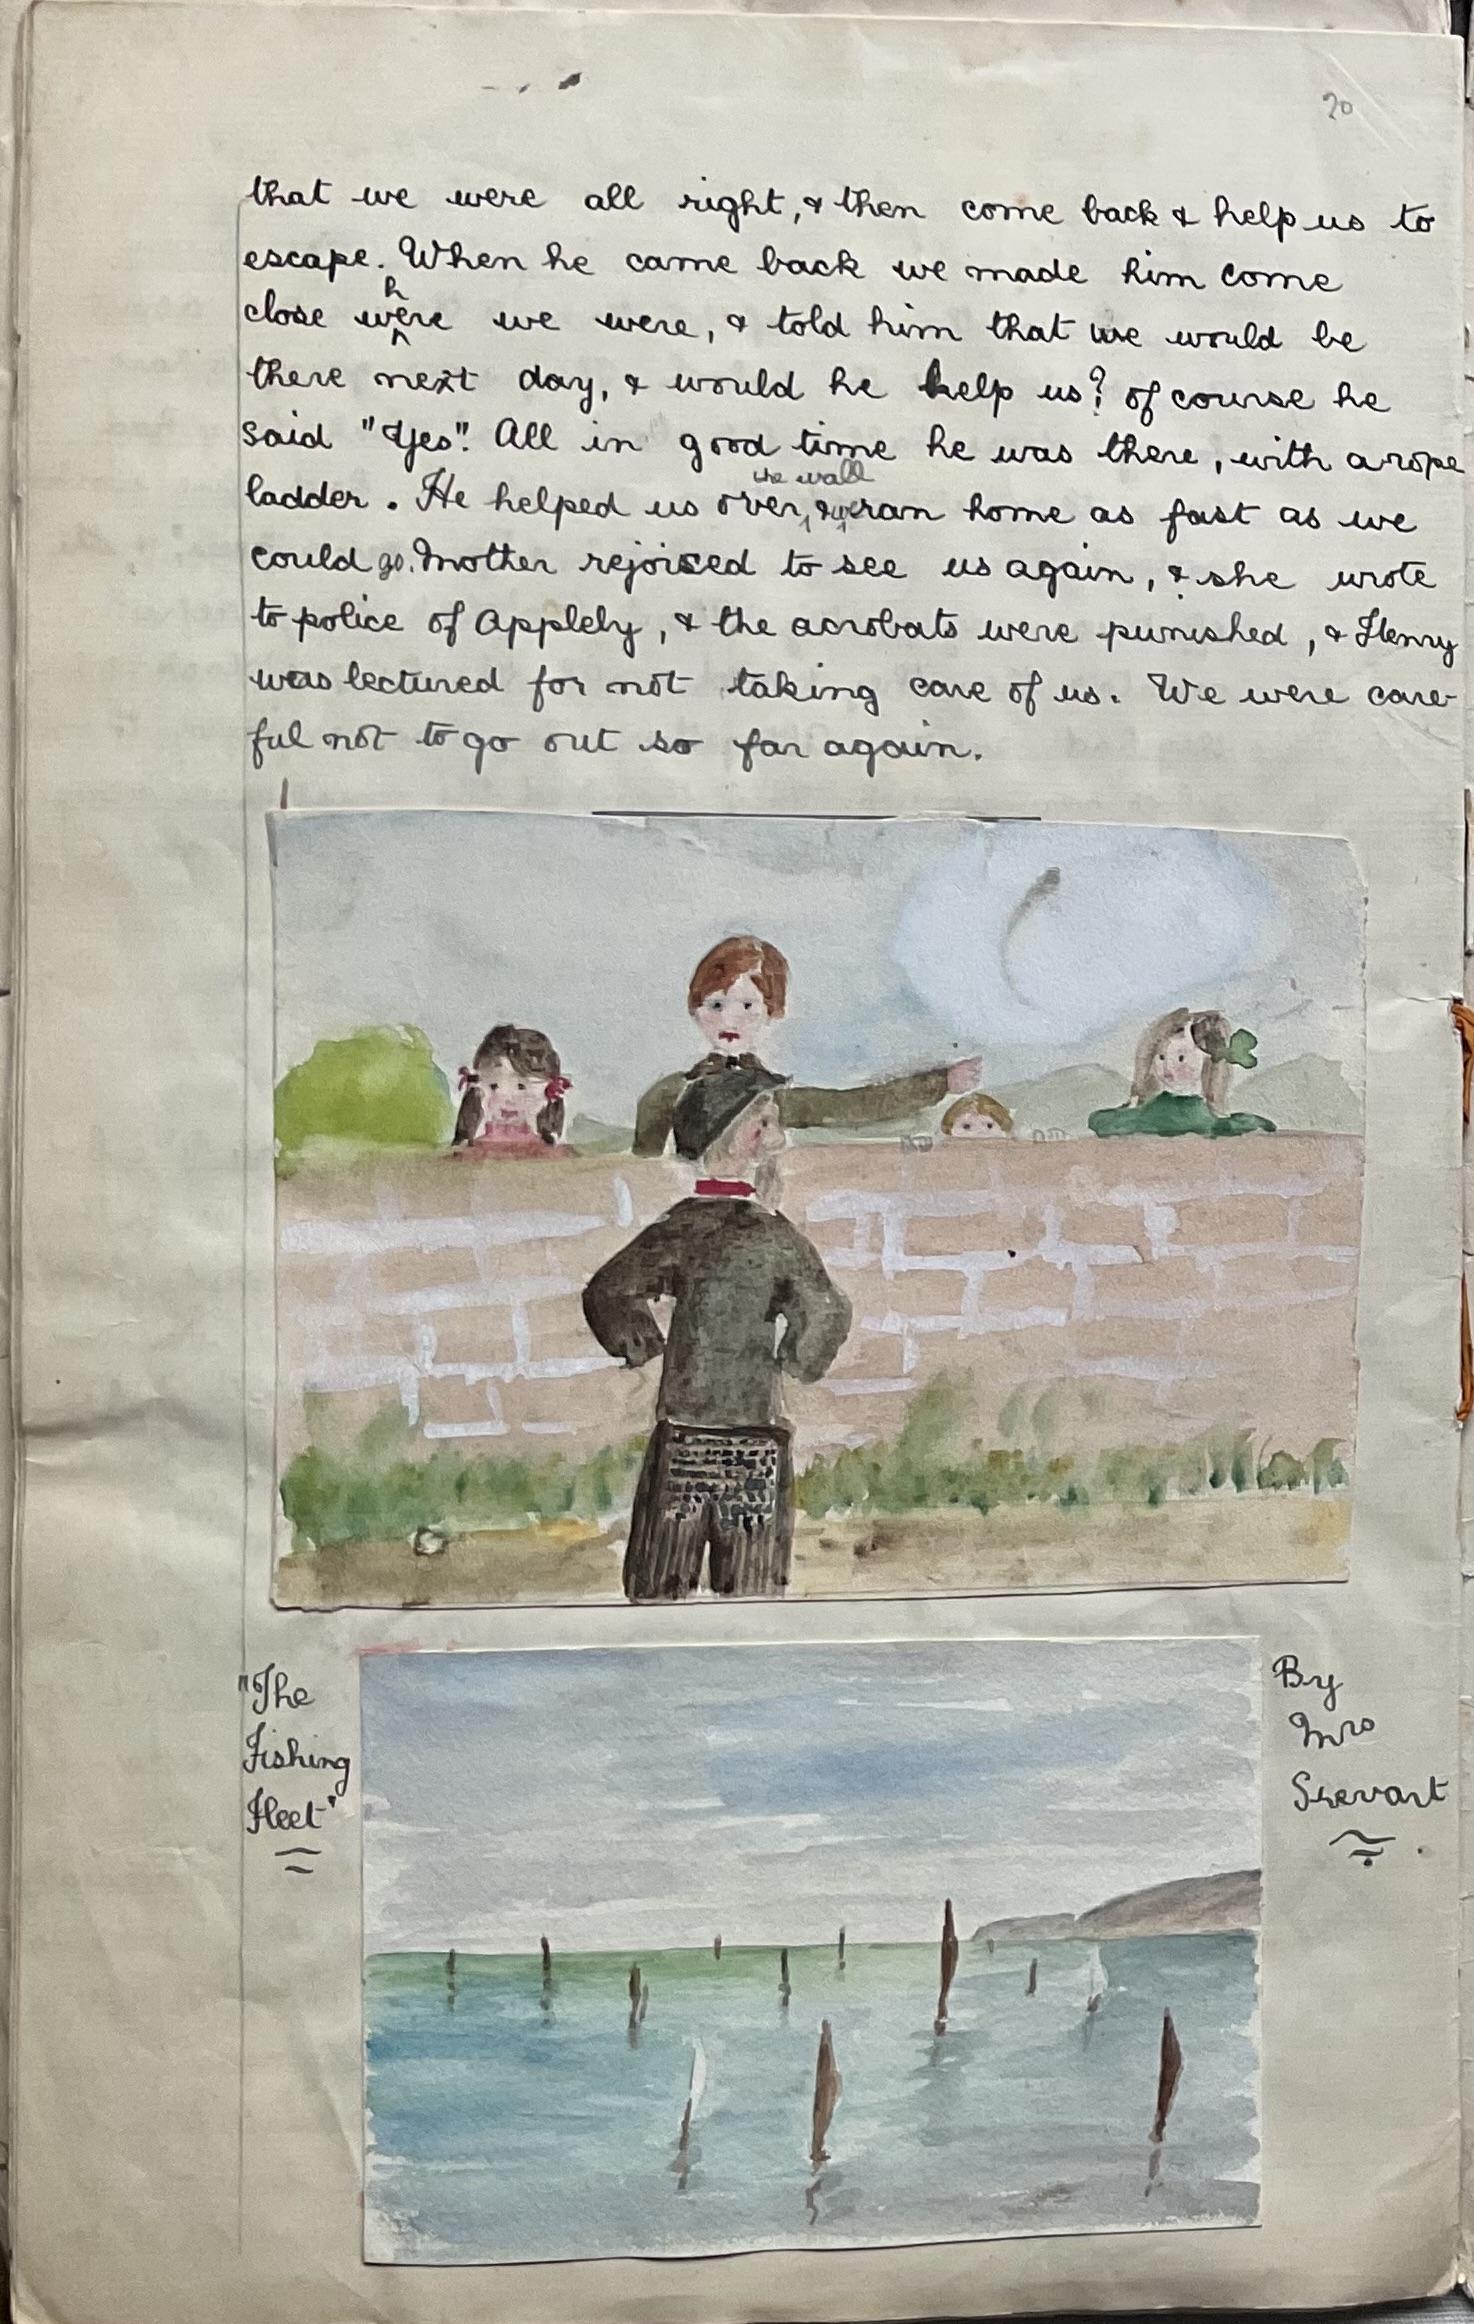 20
that we were all right, & then come back & help us to
escape. When he came back we made him come
close where we were, & told him that we would be
there next day, & would he help us? of course he
said "Yes". All in good time he was there, with a rope
ladder. He helped us over the wall, & we ran home as fast as we
could go. Mother rejoiced to see us again, & she wrote
to police of Appleby, & the acrobats were punished, & Henry
was lectured for not taking care of us. We were care-
ful not to go out so far again.
"The
Fishing
Fleet"
By
Mrs
Stewart